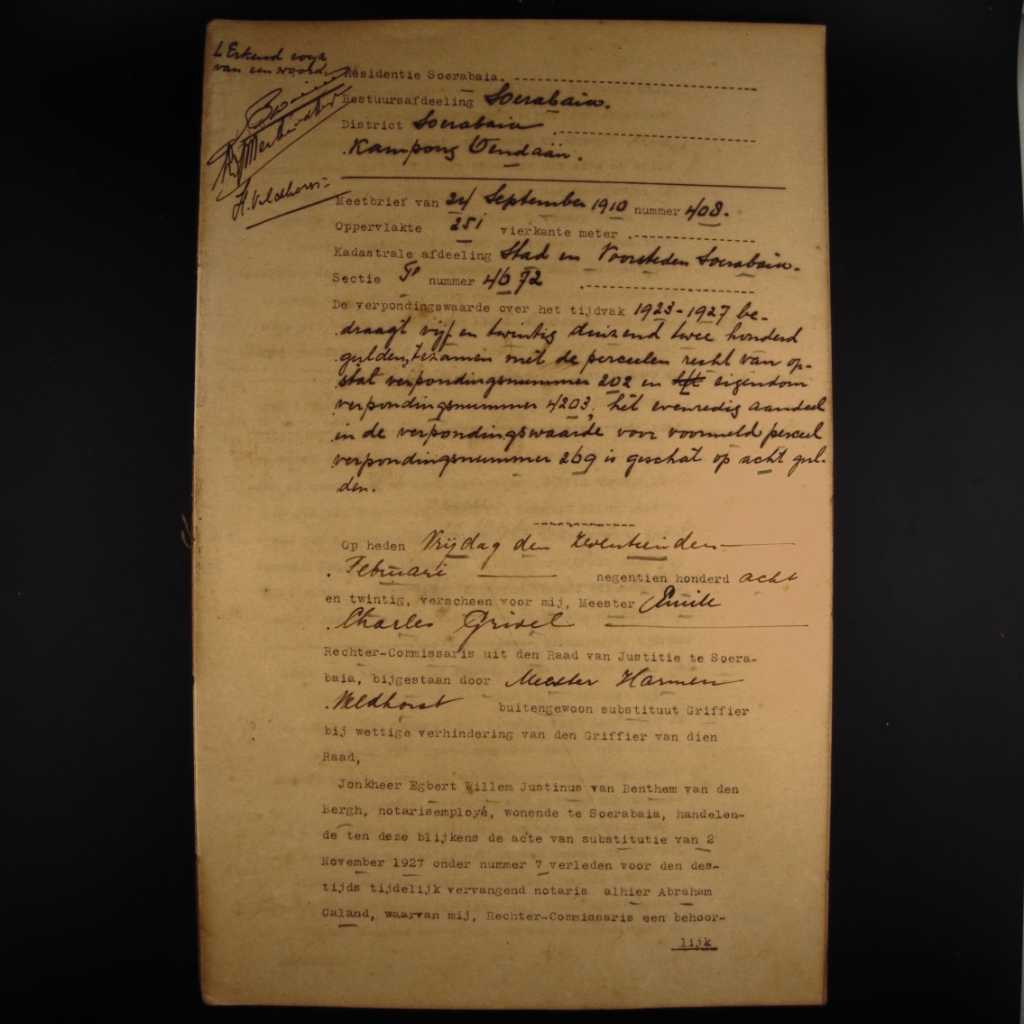 Erkend
van een woord.
H. Veldhorst
Residentie Soerabaia.
Bestuursafdeeling Soerabaia.
District Soerabaia
Kampong Oendaän.
Meetbrief van 24 September 1910 nummer 408.
Oppervlakte 251 vierkante meter.
Kadastrale afdeeling Stad en Voorsteden Soerabaia.
Sectie nummer
De verpondingswaarde over het tijdvak 1923-1927 be-
draagt vijf en twintig duizend twee honderd
gulden, tezamen met de perceelen recht van op-
stal verpondingsnummer 202 en eigendom
verpondingsnummer 4203, het evenredig aandeel
in de verpondingswaarde voor voormeld perceel
verpondingsnummer 269 is geschat op acht gul-
den.
Op heden Vrijdag den zeventienden
Februari negentien honderd acht
en twintig, verscheen voor mij, Meester Emile
Charles Grivel
Rechter-Commissaris uit den Raad van Justitie te Soera-
baia, bijgestaan door Meester Harmen
Veldhorst buitengewoon substituut Griffier
bij wettige verhindering van den Griffier van dien
Raad,
Jonkheer Egbert Willem Justinus van Benthem van den
Bergh, notarisemployé, wonende te Soerabaia, handelen-
de ten deze blijkens de acte van substitutie van 2
November 1927 onder nummer 7 verleden voor den des-
tijds tijdelijk vervangend notaris alhier Abraham
Caland, waarvan mij, Rechter-Commissaris een behoor-
lijk